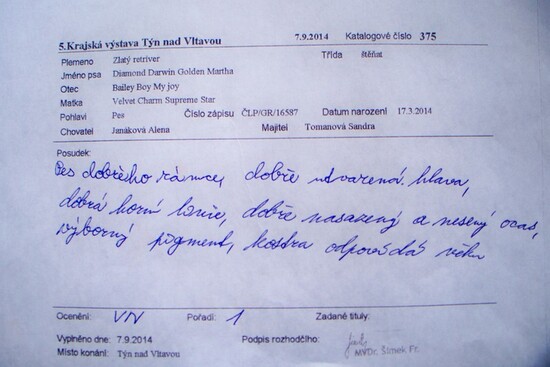 5.Krajská výstava Týn nad Vltavou 7.9.2014 Katalogové číslo 375
Plemeno Zlatý retriver Třída štěňat
Jméno psa Diamond Darwin Golden Martha
Otec Bailey Boy My joy
Matka Velvet Charm Supreme Star
Pohlaví Pes Číslo zápisu ČLP/GR/16587 Datum narození 17.3.2014
Chovatel Janáková Alena Majitel Tomanová Sandra
Posudek:
Pes dobrého rámce, dobře utvářená hlava,
dobrá horní linie, dobře nasazený a nesený ocas,
výborný pigment, kostra odpovídá věku
Ocenění: VN Pořadí: 1 Zadané tituly:
Vyplněno dne: 7.9.2014 Podpis rozhodčího:
Místo konání: Týn nad Vltavou MVDr. Šimek Fr.